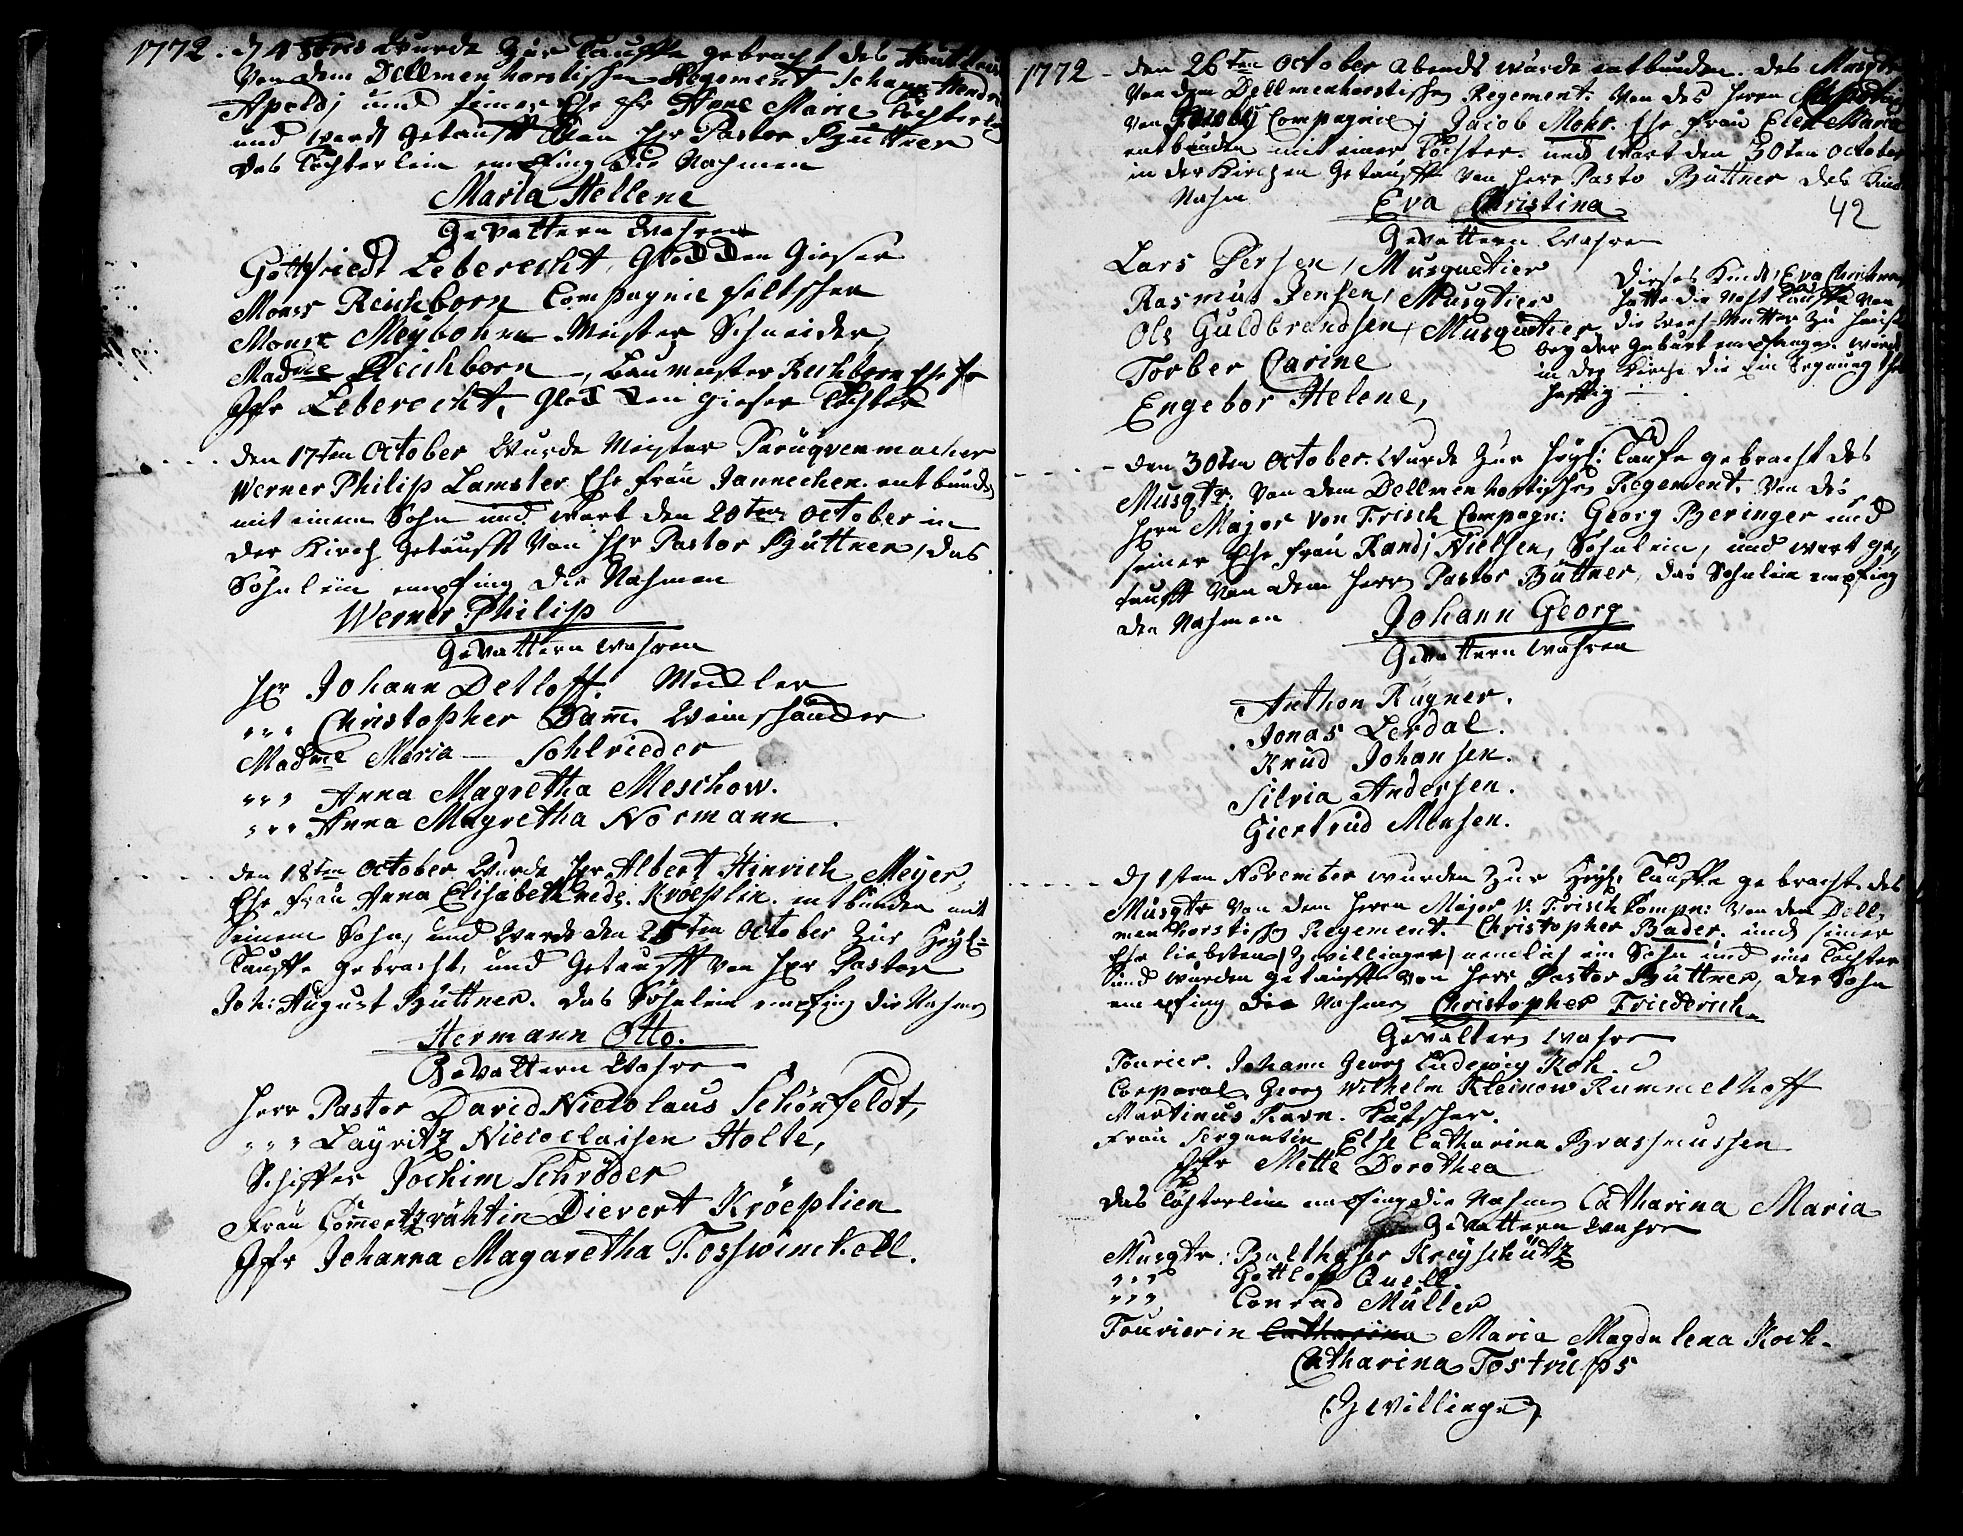 1772. d 4 8bris Wurde Zur Tauffe gebracht des
Von dem Dellmenhorstischen Regement Johann Hendr
Apoldj und seiner Ehe fr Anne Marie Töchterlein
und ward Getaufft Von Hr Pastor Büttner
das Töchterlein empfing die Nahmen
Maria Hellene
Gevattern Wahren
Gottfriedt Leberecht, Glocken Gieser
Monsr Reichborn Compagnie feltscher
Monsr Meÿbohm Meister Schneider
Madme Reichborn, Baumeister Reichborn Ehe fr
Jfr Leberecht, Glocken gieser Tochter
den 17ten October Wurde Meister Paruqvenmacher
Werner Philip Lamster Ehe frau Jannechen entbunden
mit einem Sohn und Wart den 20ten October in
der Kirch Getaufft Von Hr Pastor Büttner, das
Söhnlein empfing die Nahmen
Werner Philip
Gevattern Wahren
Hr Johann Detloff. Meckler
,,, Christopher Dam. Weinschäncker
Madme Maria Sohlrieder
,,, Anna Magretha Meschow.
,,, Anna Magretha Normann.
den 18ten October Wurde Hr Albert Hinrich Meyer,
Ehe frau Anna Elisabeth Kröeplin. entbunden mit
einem Sohn, und Wurde den 25ten October Zur Heyl=
Tauffe gebracht, und Getaufft Von Hr Pastor
Joh: August Büttner. das Söhnlein empfing die Nahmen
Hermann Otto.
Gevattern Wahren
Herr Pastor David Nicolaus Schönfeldt,
,,, Layritz Nicolaisen Holte,
Schiffer Jochim Schröder
Frau Commertzrähtin Dievert Kröeplien
Jfr Johanna Magaretha Fosswinckell.
1772 - den 26ten October abends wurde entbunden. des Musqtr
Von dem Dellmenhorstischen Regement. Von des Herrn
Von Compagnie, Jacob Mohr. Ehe frau Elen Maria
entbunden mit einer Tochter. und Wart den 30ten October
in der Kirchen Getaufft Von Herr Pasto Büttner des Kind
Nahm Eva Christina
42
Gevattern Wahren
Lars Persen, Musquetier
Rasmus Jensen, Musqtier
Ole Guldbrandsen, Musquetier
Torber Carine
Engebor Helene,
Dieses Kindt, Eva Christina
hatte die Noht Tauffe Von
die Wehe-Mutter Zu Hause
bey der Geburt empfangen
in der Kirche die Ein Segnung
- den 30ten October. Wurde Zur Heyl: Taufe gebracht des
Musqtr. Von dem Dellmenhorstischen Regement. Von des
Hern Major Von Frisch Compagn: Georg Beringer und
seiner Ehe frau Randj Nielsen, Sohnlein, und wart ge,
taufft Von dem Herrn Pastor Büttner, das Sohnlein empfing
den Nahmen Johann Georg
Gevattern Wahren
Anthon Rugner.
Jonas Lerdal.
Knud Johansen.
Silvia Andersen.
Giertrud Monsen.
d 1sten November wurden Zur Heyl: Tauffe gebracht. des
Musqtr Von dem Herrn Major V: Frisch Compn: Von dem Dell,
menhorstischen Regement. Christopher Bader. und seiner
Ehe liebsten Zwillinger nemlich ein Sohn und eine Tochter
und wurden getaufft Von Herr Pastor Büttner, der Sohn
empfing die Nahmen Christopher Friederich
Gevattern Wahren
Fourier. Johann Georg Ludewig Koh.
Corporal. Georg Wilhelm Kleinow Rummelhoff
Martinus Ravn. Kutscher.
Frau Sergantin Else Catharina Brasmussen
Jfr Mette Dorothea
das Töchterlein empfing die Nahmen Catharina Maria
Gevattern Wahren
Musqtr: Balthaser Kreyschütz
,,, Gottlob Quell.
,,, Conrad Müller
Fourierin Catharina Maria Magdalena Koch.
Catharina Tostrups
Zwillinger